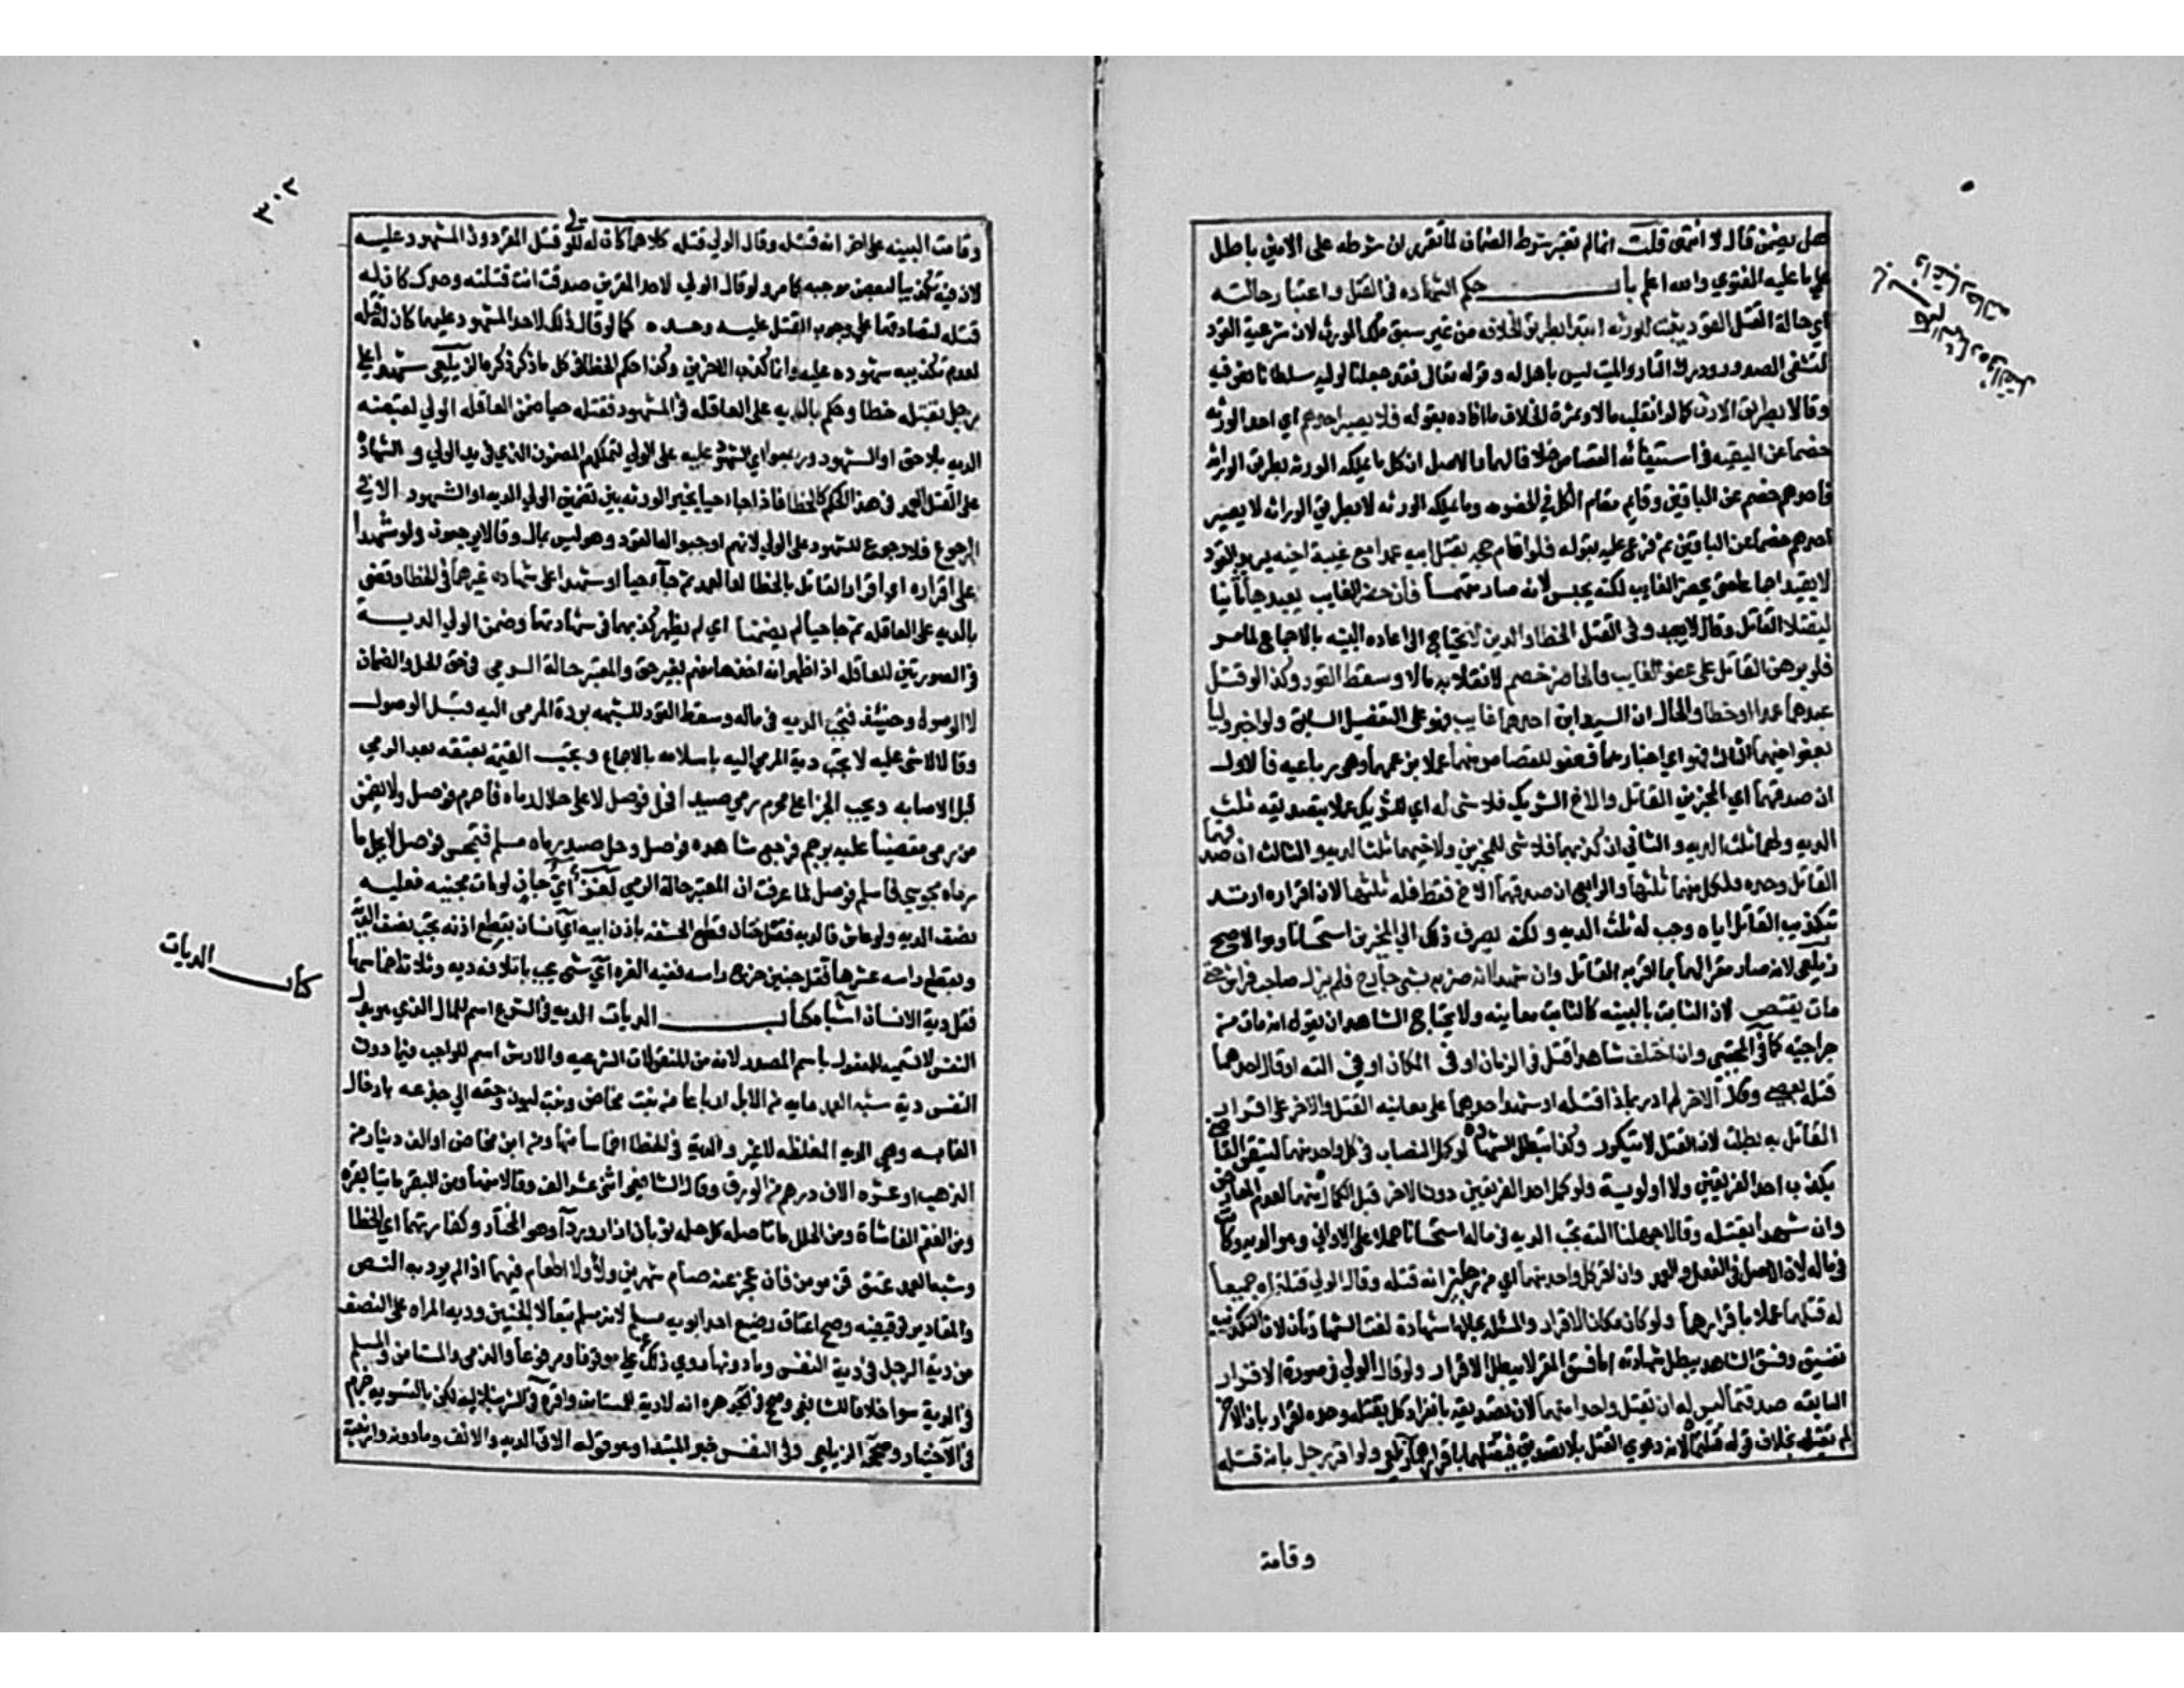 هل يضمن قال لا انتهى قلت انما لم تعتبر شرط الضمان لما تقرر ان شرطه على الامين باطل
على ما عليه الفتوي والله اعلم باب حكم الشهاده فى القتل واعتبار حالته
اي حالة القتل القود يثبت للورثه ابتدا بطريق الخلافه من غير سبق ملك المورث لان شرعية القود
لتشفى الصدور ودرك الثار والميت ليس باهل له وقوله تعالى فقد جعلنا لوليه سلطانا نص فيه
وقالا بطريق الارث كما لو انقلب مالا وثمرة الخلاف ما افاده بقوله فلا يصير احدهم اي احد الورثه
خصما عن البقيه فى استيفائه القصاص خلافا لهما والاصل ان كل ما يملكه الورثه بطريق الوراثه
فاحدهم خصم عن الباقين وقايم مقام الكل في الخصومه وما يملكه الورثه لا بطريق الوراثه لا يصير
احدهم خصما عن الباقين ثم فرع عليه بقوله فلو اقام حجه بقتل ابيه عمدا مع غيبة اخيه يريد القود
لا يقيد اجماعا حتى يحضر الغايب لكنه يحبس لانه صار متهما فان حضر الغايب يعيدها ثانيا
ليقتلا القاتل وقالا لا يعيد وفى القتل الخطا والدين لا يحتاج الى اعاده البينه بالاجماع لما مر
فلو برهن القاتل على عفو الغايب فالحاضر خصم لانقلابه مالا وسقط القود وكذا لو قتل
عبدهما عمدا او خطا والحال ان السيدين احدهما غايب فهو على التفصيل السابق ولو اخبر وليا
بعفو اخيهما الثالث فهو اي اخبارهما فعفو للقصاص منهما عملا بزعمهما وهى رباعيه فالاول
ان صدقهما اي المخبرين القاتل والاخ الشريك فلا شى له اي للشريك عملا بتصديقه ثلث
الديه ولهما ثلثا الديه والثانى ان كذبهما فلا شى للمخبرين ولاخيهما ثلث الديه والثالث ان صدقهما
القاتل وحده فلكل منهما ثلثها والرابع ان صدقهما الاخ فقط فله ثلثها لان اقراره ارتد
بتكذيب القاتل اياه وجب له ثلث الديه ولكنه يصرف ذلك الي المخبرين استحسانا وهو الاصح
زيلعي لانه صار مقرا لهما بما اقر به القاتل وان شهدا انه ضربه بشى جارح فلم يزل صاحب فراش حتى
مات يقتص لان الثابت بالبينه كالثابت معاينه ولا يحتاج الشاهد ان يقول انه مات من
جراحته كما في المجتبى وان اختلف شاهدا قتل فى الزمان او فى المكان او فى الته او قال احدهما
قتله بعصى وقال الاخر لم ادر بماذا قتله او شهد احدهما على معاينه القتل والاخر على اقرار
القاتل به بطلت لان القتل لا يتكرر وكذا تبطل الشهاده لو كمل النصاب فى كل واحد منهما لتيقن القاضى
بكذب احد الفريقين ولا اولوية ولو كمل احد الفريقين دون الاخر قبل الكامل منهما لعدم المعارض
وان شهدا بقتله وقالا جهلنا الته تجب الديه فى ماله استحسانا حملا على الادانى وهو الديه وكانت
فى ماله لان الاصل فى الفعل العمد وان اقر كل واحد منهما اي من رجلين انه قتله وقال الولي قتلتماه جميعا
له قتلهما عملا باقرارهما ولو كان مكان الاقرار والمسئله بحالها شهادة لغت الشهادتان لان التكذيب
تفسيق وفسق الشاهد يبطل شهادته اما فسق المقر لا يبطل الاقرار ولو قال الولي فى صورة الاقرار
السابقه صدقتما ليس له ان يقتل واحدا منهما لان تصديقه بانفراد كل بقتله وحده اقرار بان الاخر
لم يقتله بخلاف قوله قتلتما لانه دعوى القتل بلا تصديق فيقتلهما باقرارهما زيلعي ولو اقر رجل بانه قتله
وقامة
باب الشهاده في القتل
واعتبار حالته
٣٠٢
وقامت البينه على اخر انه قتله وقال الولي قتله كلاهما كان له للولي قتل المقر دون المشهود عليه
لان فيه تكذيبا لبعض موجبه كما مر ولو قال الولي لاحد المقرين صدقت انت قتلته وحدك كان له
قتله لتصادقهما على وجوب القتل عليه وحده كما لو قال ذلك لاحد المشهود عليهما كان له قتله
لعدم تكذيبه شهوده عليه وانما كذب الاخرين وكذا حكم الخطا فى كل ما ذكر ذكره الزيلعى شهدا على
رجل بقتله خطا وحكم بالديه على العاقله فجا المشهود بقتله حيا ضمن العاقله الولي لقبضه
الديه بلا حق او الشهود ورجعوا اي الشهود عليه على الولي لتملكهم المضمون الذي فى يد الولي والشهاده
على القتل العمد فى هذا الحكم كالخطا فاذا جاء حيا يخير الورثه بين تضمين الولي الديه او الشهود الا في
الرجوع فلا رجوع للشهود على الولي لانهم اوجبوا له القود وهو ليس بمال وقالا يرجعون ولو شهدا
على اقراره او اقرار القاتل بالخطا او العمد ثم جآء حيا او شهدا على شهادة غيرهما فى الخطا وقضى
بالديه على العاقله ثم جا حيا لم يضمنا اي لم يظهر كذبهما فى شهادتهما وضمن الولي الدية
فى الصورتين للعاقله اذ ظهر انه اخذها منهم بغير حق والمعتبر حالة الرمي فى حق الحل والضمان
لا الوصول وحينئذ فتجب الديه فى ماله وسقط القود للشبهه بردة المرمى اليه قبل الوصول
وقالا لا شى عليه لا تجب دية المرمي اليه باسلامه بالاجماع وتجب القيمة بعتقه بعد الرمي
قبل الاصابه ويجب الجزا على محرم رمى صيدا فحل فوصل لا على حلال رماه فاحرم فوصل ولا يضمن
من رمى مقضيا عليه برجم فرجع شاهده فوصل وحل صيد رماه مسلم فتمجس فوصل لا يحل ما
رماه مجوسي فاسلم فوصل لما عرفت ان المعتبر حالة الرمي لغز اي جان لو مات مجنيه فعليه
نصف الديه ولو عاش فالديه فقل ختان قطع الحشفه باذن ابيه اي انسان بقطع اذنه يجب نصف الدية
وبقطع راسه عشرها فقل جنين خرج راسه ففيه الغره اي شى يجب باتلافه ديه وثلاثة اخماسها
فقل دية الانسان اشباه كتاب الديات الديه فى الشرع اسم للمال الذي هو بدل
النفس لا تسميه للمفعول باسم المصدر لانه من المنقولات الشرعيه والارش اسم للواجب فيما دون
النفس دية شبه العمد مايه من الابل ارباعا من بنت مخاض وبنت لبون وحقه الي جذعه بادخال
الغايه وهى الديه المغلظه لا غير والدية فى الخطا اخماسا منها ومن ابن مخاض او الف دينار من
الذهب او عشره الاف درهم من الورق وقال الشافعي اثنى عشر الف وقالا منها ومن البقر مايتا بقره
ومن الغنم الفا شاة ومن الحلل مايتا حله كل حله ثوبان ازار وردآ وهو المختار وكفارتهما اي الخطا
وشبه العمد عتق قن مومن فان عجز عنه صام شهرين ولاء ولا اطعام فيهما اذ لم يرد به النص
والمقادير توقيفيه وصح اعتاق رضيع احد ابويه مسلم لانه مسلم تبعا لا الجنين وديه المراه على النصف
من دية الرجل فى دية النفس وما دونها روي ذلك عن علي موقوفا ومرفوعا والذمي والمستامن والمسلم
فى الدية سوا خلافا للشافعي وصحح فى الجوهره انه لا دية للمستامن واقره فى الشرنبلاليه لكن بالتسويه جزم
فى الاختيار وصححه الزيلعي وفى النفس خبر المبتدا وهو قوله الاتى الديه والانف ومارنه وارنبته
كتاب الديات